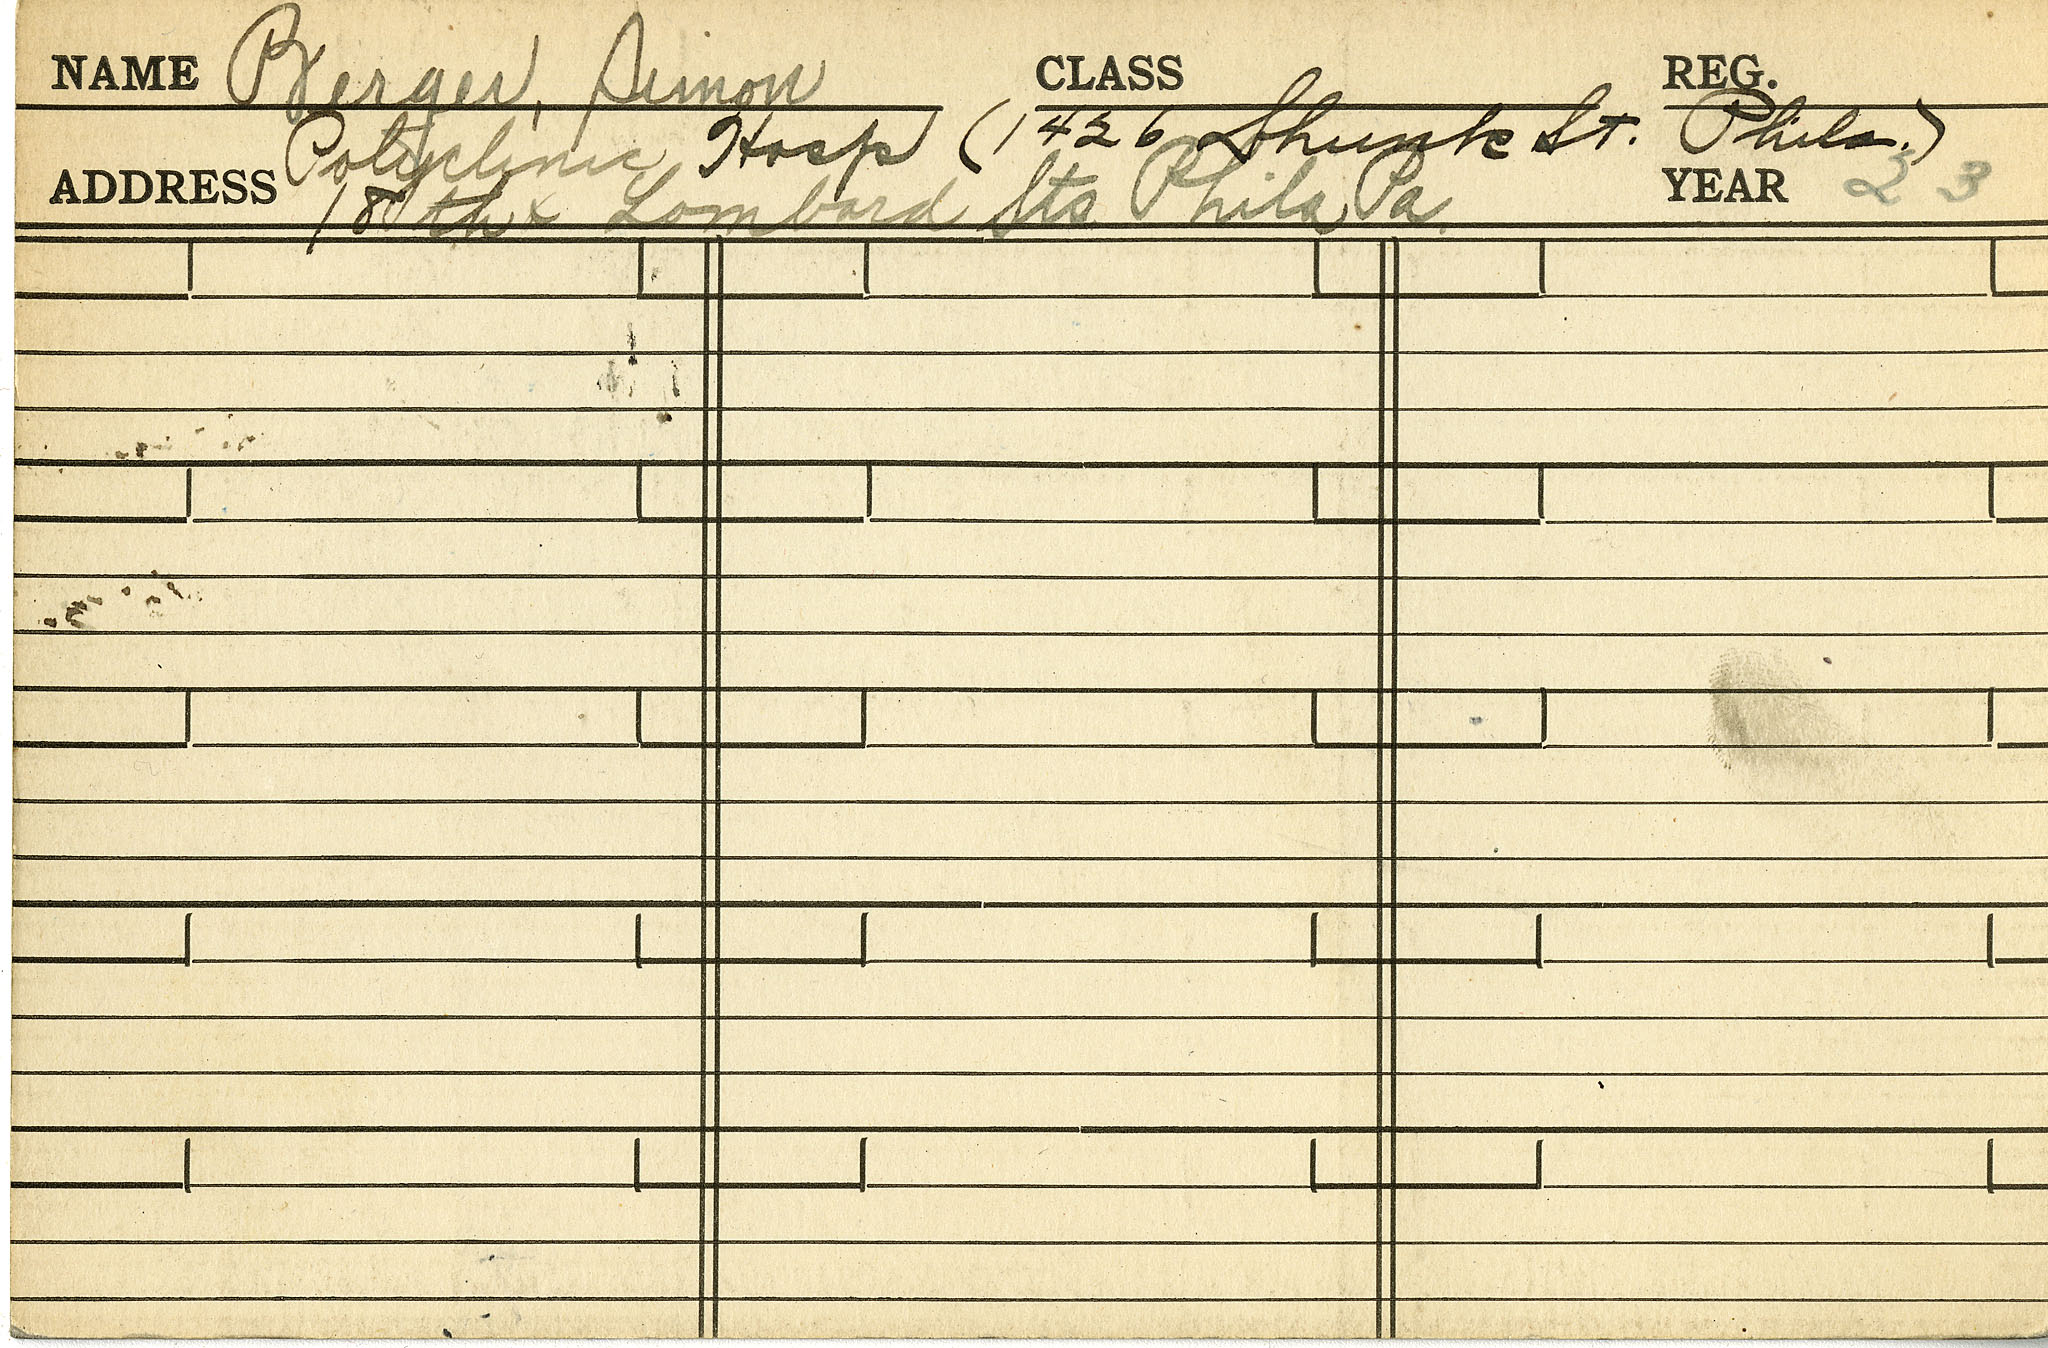 NAME Berger, Simon CLASS REG.
ADDRESS Polyclinic Hosp (1426 Shunk St. Phila.)
18th & Lombard Sts Phila Pa. YEAR 23